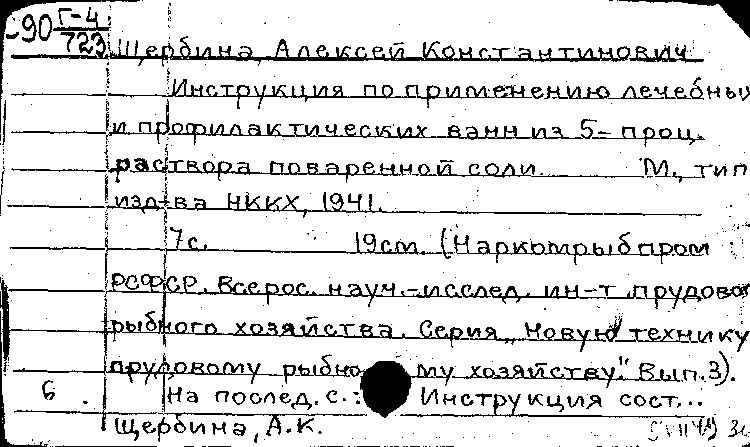 Г-4
90 723
Щербина, Алексей Константинович
Инструкция по применению лечебны
и профилактических ванн из 5-проц.
раствора поваренной соли. М., тип
изд-ва НККХ, 1941.
7с. 19см. (Наркомрыбпром
РСФСР. Всерос. науч.-исслед. ин-т прудово
рыбного хозяйства. Серия „Новую технику
прудовому рыбно му хозяйству." Вып. 3).
6 . На послед. с.: Инструкция сост...
Щербина, А.К.